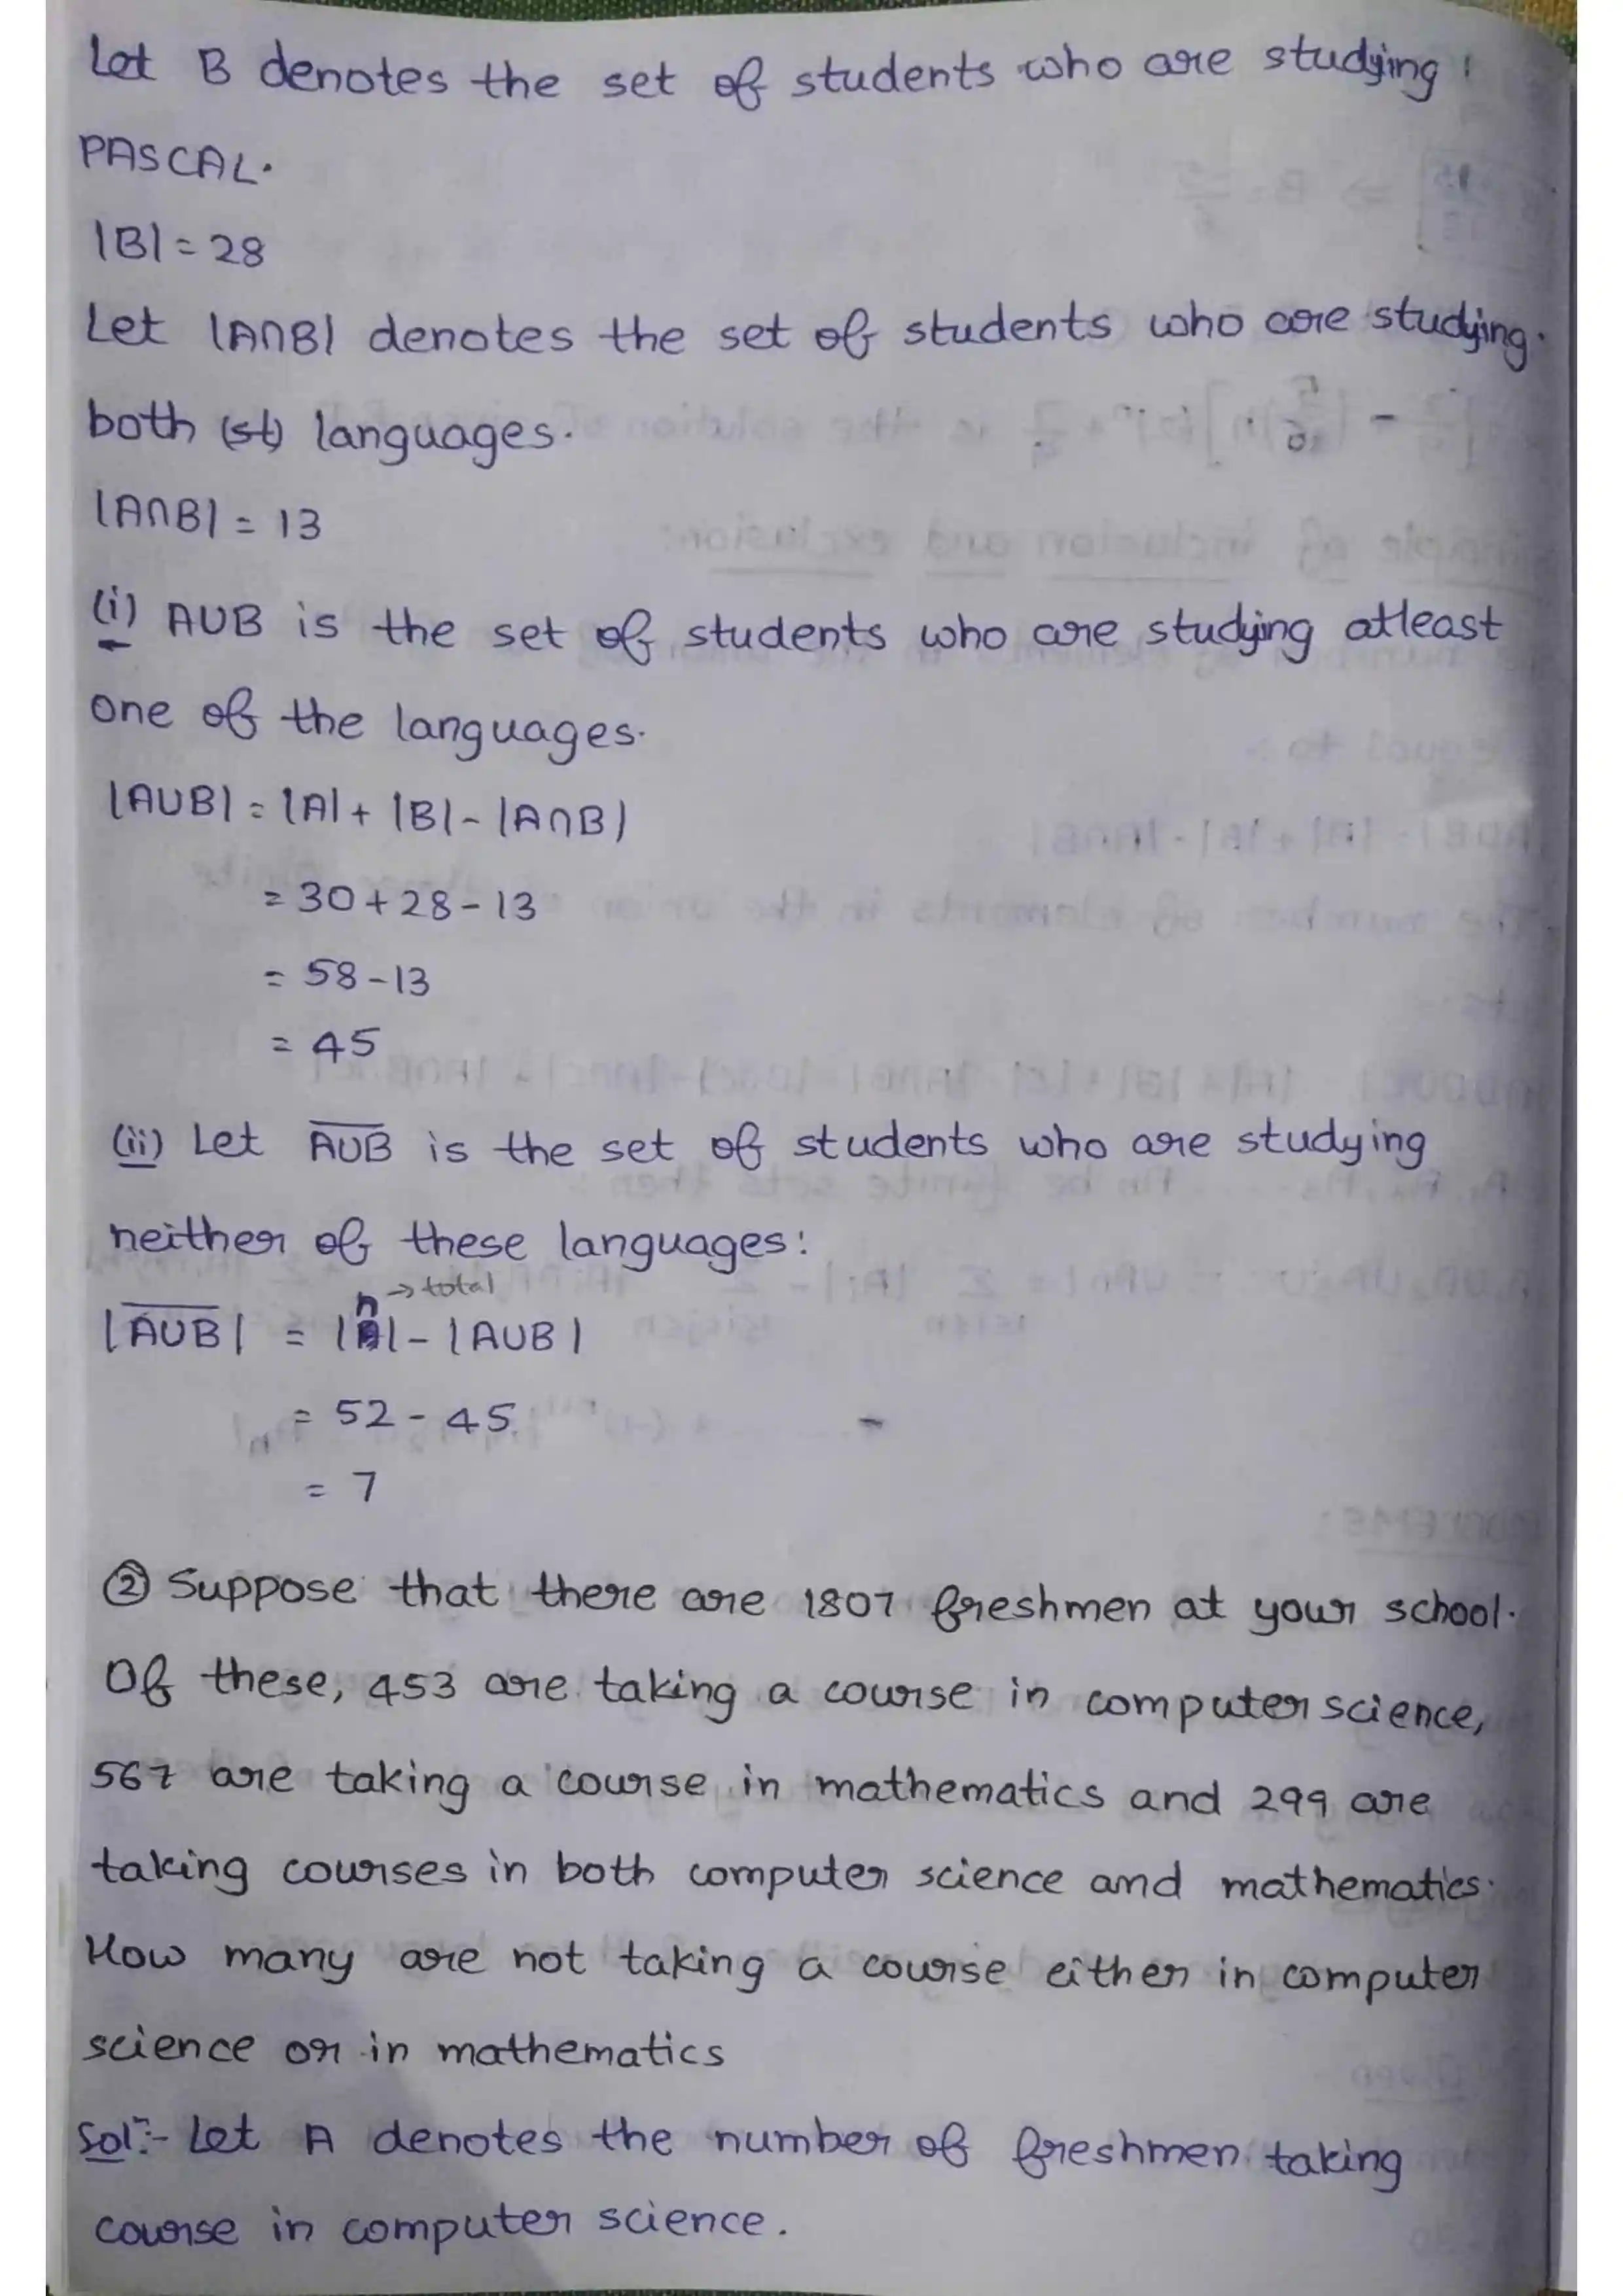 Let B denotes the set of students who are studying
PASCAL.
|B| = 28
Let |A∩B| denotes the set of students who are studying
both (st) languages.
|A∩B| = 13
(i) A∪B is the set of students who are studying atleast
one of the languages.
|A∪B| = |A| + |B| - |A∩B|
= 30 + 28 - 13
= 58 - 13
= 45
(ii) Let A̅∪̅B̅ is the set of students who are studying
neither of these languages:
n → total
|A̅∪̅B̅| = |n| - |A∪B|
= 52 - 45
= 7
② Suppose that there are 1807 freshmen at your school.
Of these, 453 are taking a course in computer science,
567 are taking a course in mathematics and 299 are
taking courses in both computer science and mathematics.
How many are not taking a course either in computer
science or in mathematics
Sol:- Let A denotes the number of freshmen taking
course in computer science.